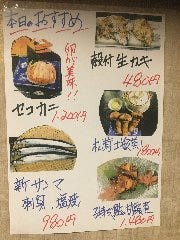 本日のおすすめ
卵が美味!!
セコカニ
1,200円
殻付生カキ
480円
180円
新サンマ
刺身、塩焼
980円
1,480円